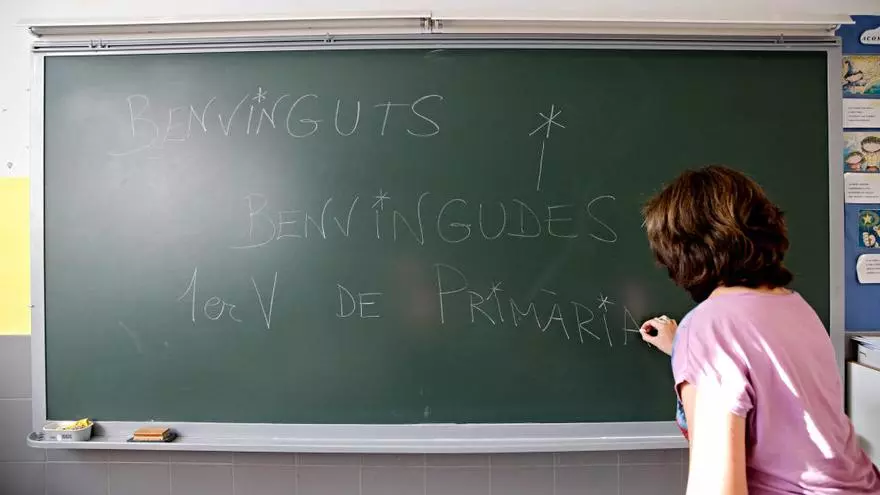 BENVINGUTS i
BENVINGUDES
1er V DE PRIMÀRIA
ACOM